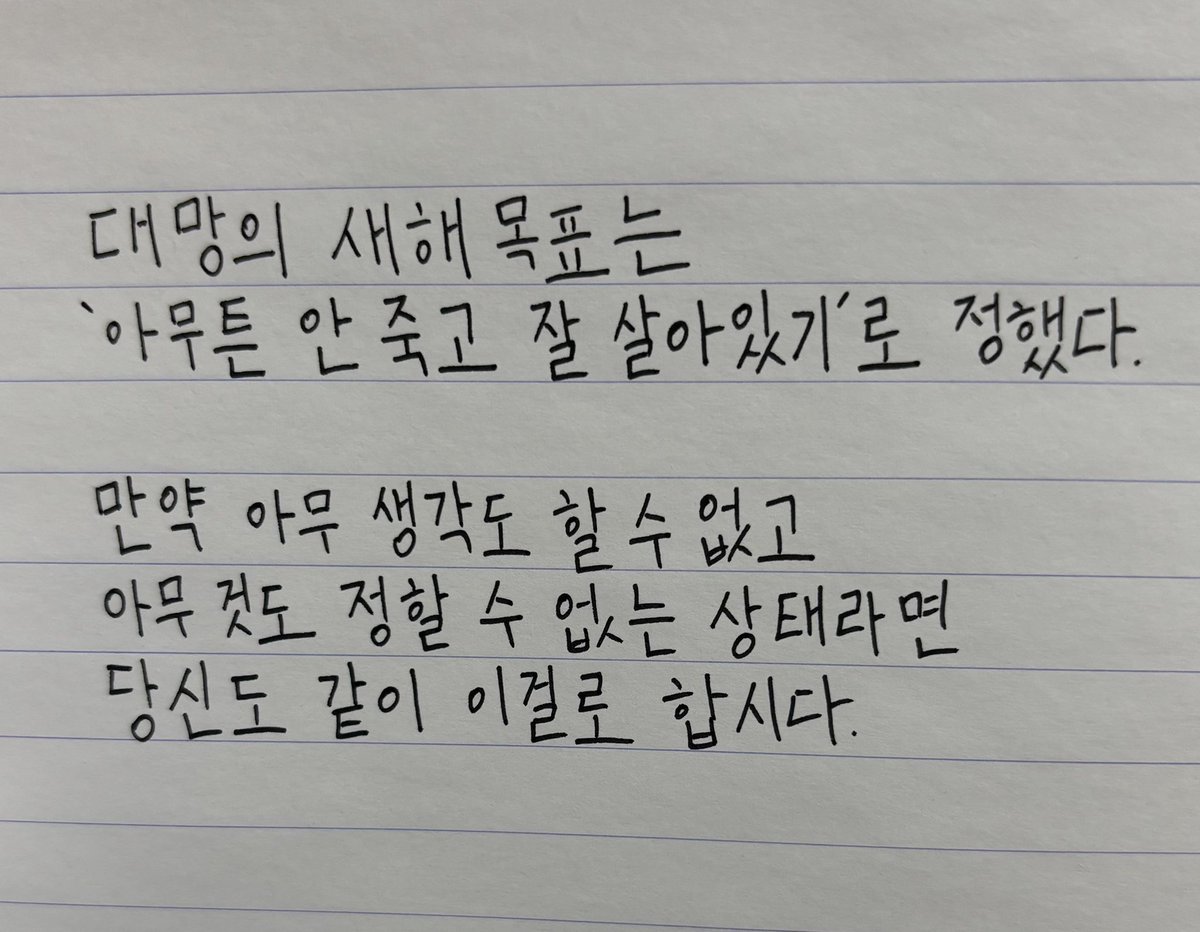 대망의 새해 목표는
'아무튼 안 죽고 잘 살아있기'로 정했다.
만약 아무 생각도 할 수 없고
아무것도 정할 수 없는 상태라면
당신도 같이 이걸로 합시다.